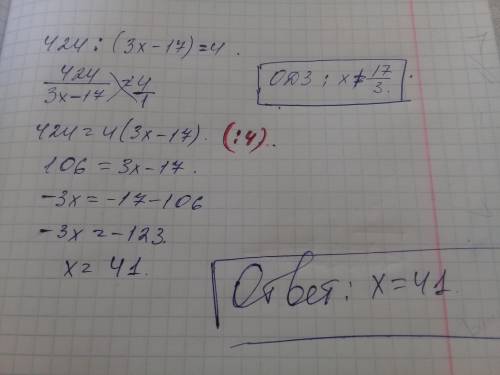 424 : (3x-17) = 4.
424/(3x-17) = 4/1
ОДЗ: x ≠ 17/3.
424 = 4(3x-17). (:4).
106 = 3x-17.
-3x = -17-106
-3x = -123.
x = 41.
Ответ: x=41.